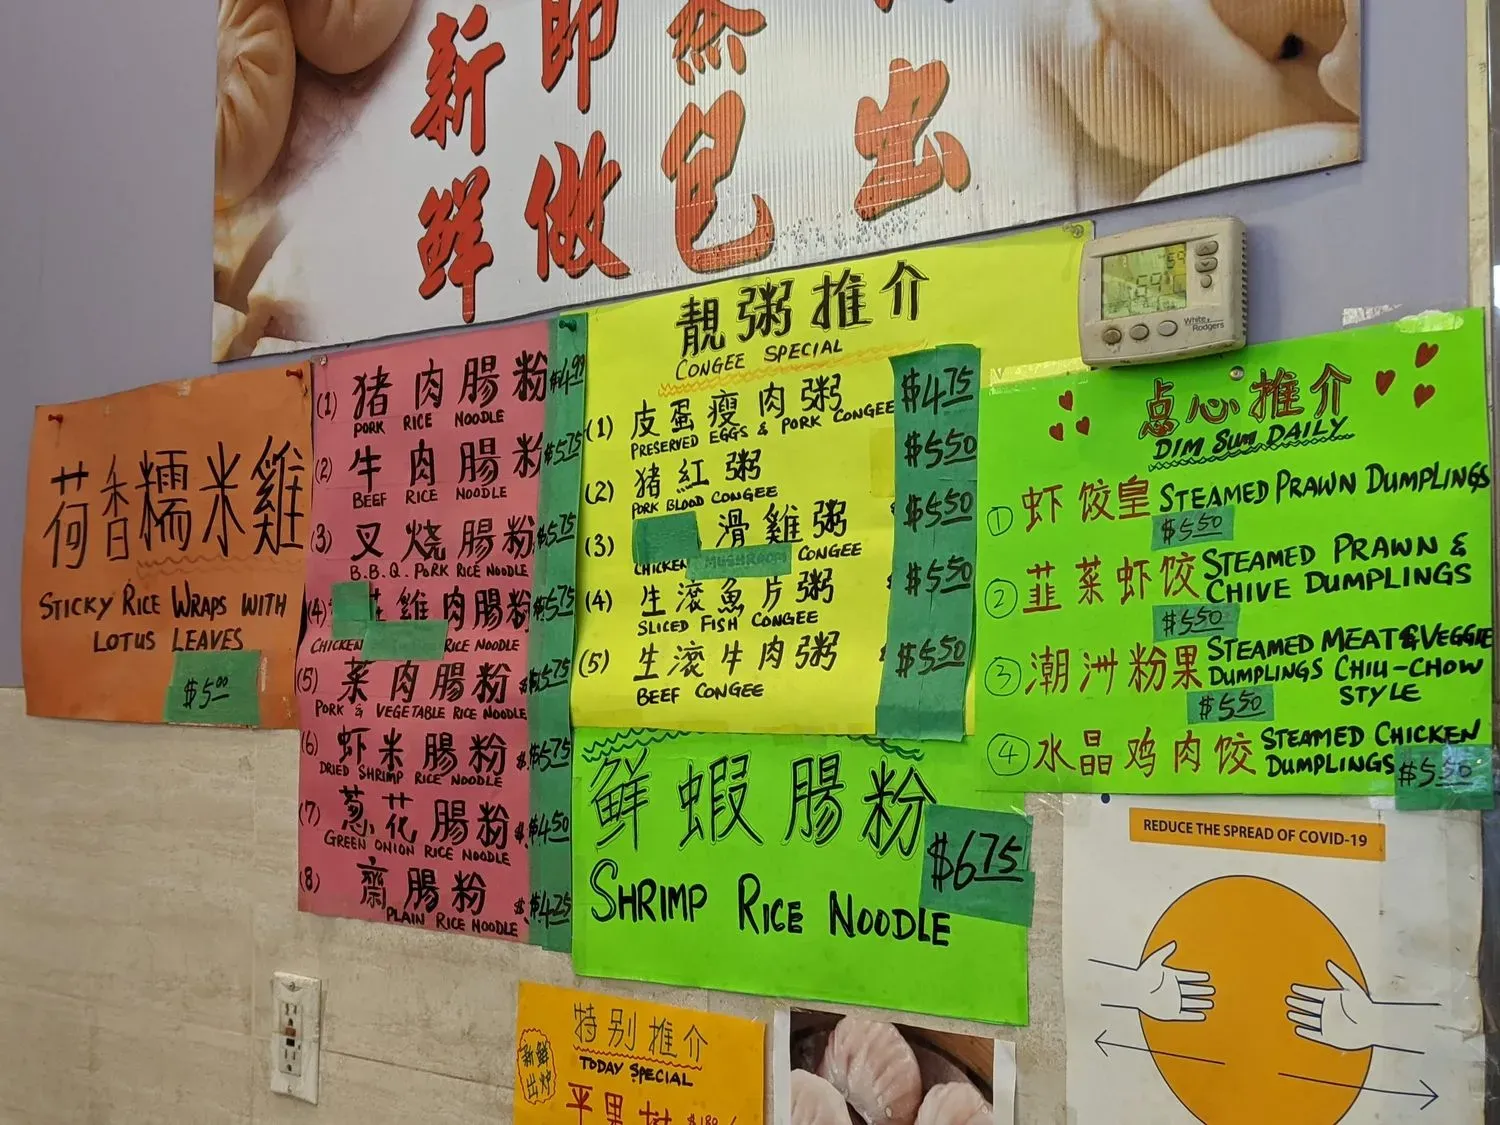 新 即
鲜 做 包 出
荷香糯米雞
STICKY RICE WRAPS WITH
LOTUS LEAVES
$5.00
(1) 猪肉腸粉 $4.99
PORK RICE NOODLE
(2) 牛肉腸粉 $5.75
BEEF RICE NOODLE
(3) 叉烧腸粉 $5.75
B.B.Q. PORK RICE NOODLE
(4) 雞肉腸粉 $5.75
CHICKEN RICE NOODLE
(5) 菜肉腸粉 $5.75
PORK & VEGETABLE RICE NOODLE
(6) 虾米腸粉 $5.75
DRIED SHRIMP RICE NOODLE
(7) 葱花腸粉 $4.50
GREEN ONION RICE NOODLE
(8) 齋腸粉 $4.25
PLAIN RICE NOODLE
靚粥推介
CONGEE SPECIAL
(1) 皮蛋瘦肉粥 $4.75
PRESERVED EGGS & PORK CONGEE
(2) 猪紅粥 $5.50
PORK BLOOD CONGEE
(3) 滑雞粥 $5.50
CHICKEN MUSHROOM CONGEE
(4) 生滚魚片粥 $5.50
SLICED FISH CONGEE
(5) 生滚牛肉粥 $5.50
BEEF CONGEE
鲜蝦腸粉
SHRIMP RICE NOODLE
$6.75
White Rodgers
点心推介
DIM SUM DAILY
① 虾饺皇 STEAMED PRAWN DUMPLINGS
$5.50
② 韮菜虾饺 STEAMED PRAWN &
CHIVE DUMPLINGS
$5.50
③ 潮洲粉果 STEAMED MEAT & VEGGIE
DUMPLINGS CHIU-CHOW
STYLE
$5.50
④ 水晶鸡肉饺 STEAMED CHICKEN
DUMPLINGS
$5.50
REDUCE THE SPREAD OF COVID-19
特别推介
TODAY SPECIAL
新鲜
出炉
平果